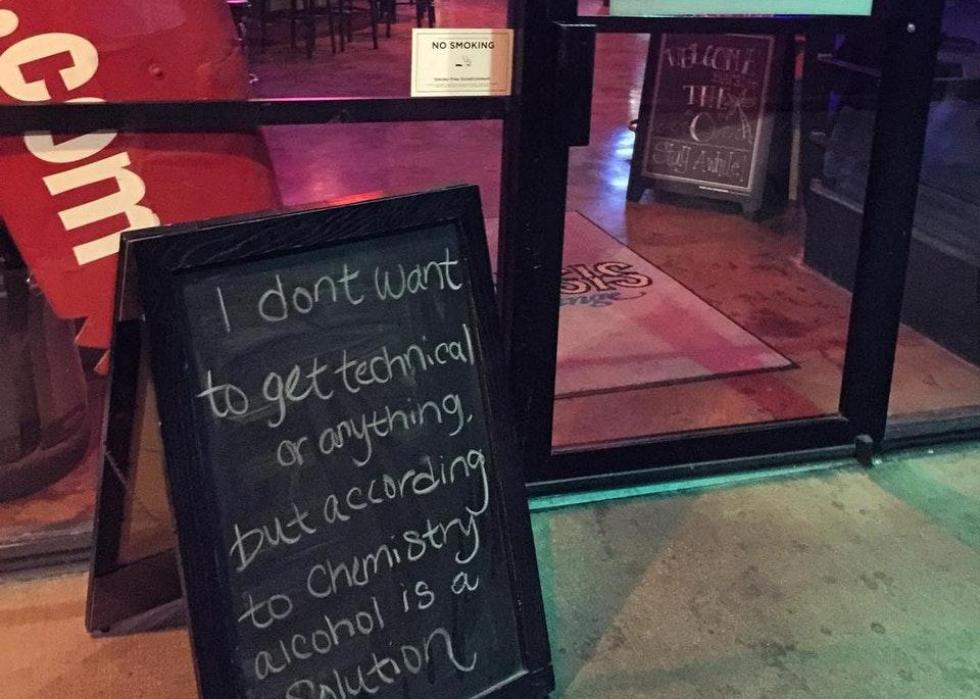 .com
NO SMOKING
WELCOME
THE
Stay Awhile!
SIS
I dont want
to get technical
or anything,
but according
to Chemistry
alcohol is a
Solution